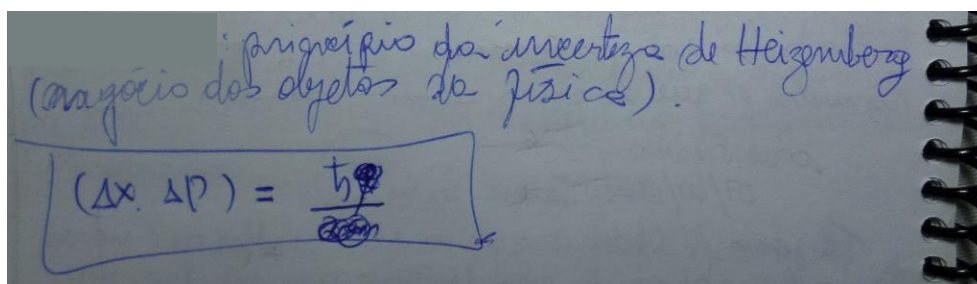 : prigncípio da incerteza de Heizemberg
(nagócio dos objetos da física).
(Δx. Δp) = ħ